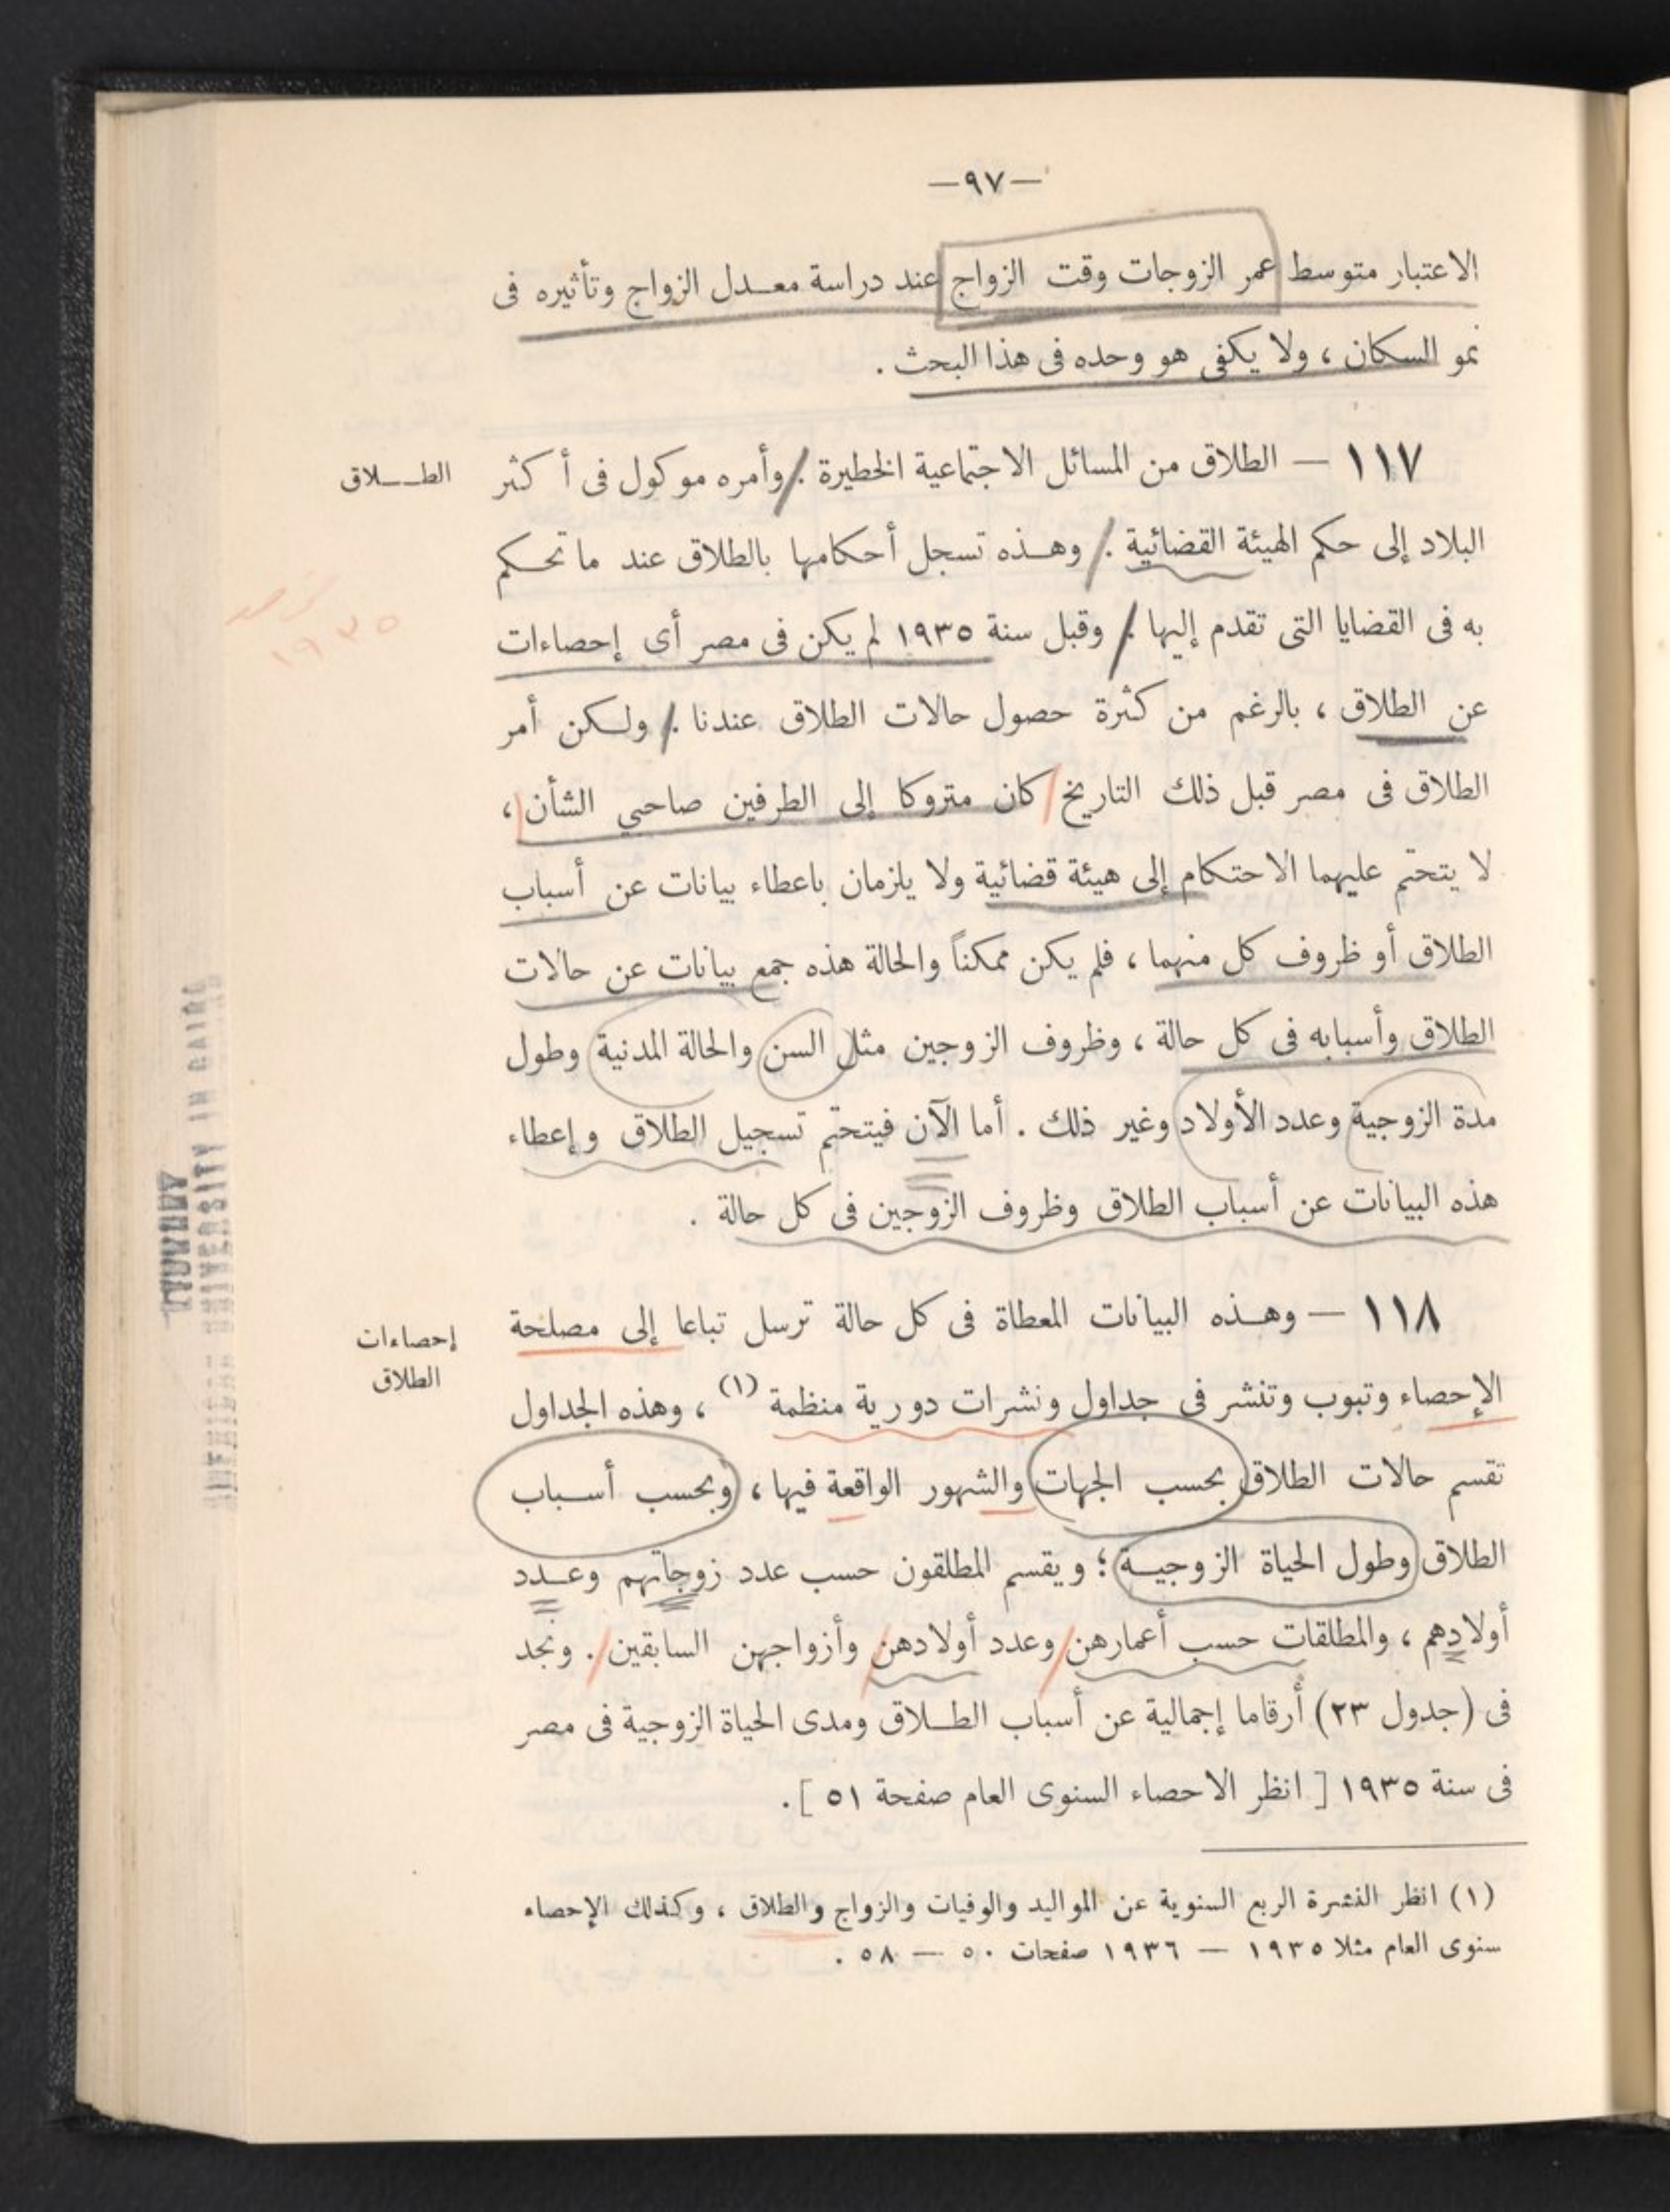 —٩٧—
الاعتبار متوسط عمر الزوجات وقت الزواج عند دراسة معـدل الزواج وتأثيره فى
نمو السكان ، ولا يكفى هو وحده فى هذا البحث .
الطــلاق
١١٧ — الطلاق من المسائل الاجتماعية الخطيرة . وأمره موكول فى أكثر
البلاد إلى حكم الهيئة القضائية . وهـذه تسجل أحكامها بالطلاق عند ما تحـكم
به فى القضايا التى تقدم إليها . وقبل سنة ١٩٣٥ لم يكن فى مصر أى إحصاءات
١٩٣٥
عن الطلاق ، بالرغم من كثرة حصول حالات الطلاق عندنا . ولـكن أمر
الطلاق فى مصر قبل ذلك التاريخ كان متروكا إلى الطرفين صاحبى الشأن ،
لا يتحتم عليهما الاحتكام إلى هيئة قضائية ولا يلزمان باعطاء بيانات عن أسباب
الطلاق أو ظروف كل منهما ، فلم يكن ممكناً والحالة هذه جمع بيانات عن حالات
الطلاق وأسبابه فى كل حالة ، وظروف الزوجين مثل السن والحالة المدنية وطول
مدة الزوجية وعدد الأولاد وغير ذلك . أما الآن فيتحتم تسجيل الطلاق وإعطاء
هذه البيانات عن أسباب الطلاق وظروف الزوجين فى كل حالة .
إحصاءات
الطلاق
١١٨ — وهـذه البيانات المعطاة فى كل حالة ترسل تباعا إلى مصلحة
الإحصاء وتبوب وتنشر فى جداول ونشرات دورية منظمة (١) ، وهذه الجداول
تقسم حالات الطلاق بحسب الجهات والشهور الواقعة فيها ، وبحسب أسـباب
الطلاق وطول الحياة الزوجيـة ؛ ويقسم المطلقون حسب عدد زوجاتهم وعـدد
أولادهم ، والمطلقات حسب أعمارهن وعدد أولادهن وأزواجهن السابقين . ونجد
فى (جدول ٢٣) أرقاما إجمالية عن أسباب الطـلاق ومدى الحياة الزوجية فى مصر
فى سنة ١٩٣٥ [ انظر الاحصاء السنوى العام صفحة ٥١ ] .
(١) انظر النشرة الربع السنوية عن المواليد والوفيات والزواج والطلاق ، وكذلك الإحصاء
سنوى العام مثلا ١٩٣٥ — ١٩٣٦ صفحات ٥٠ — ٥٨ .
AMERICAN UNIVERSITY IN CAIRO
LIBRARY